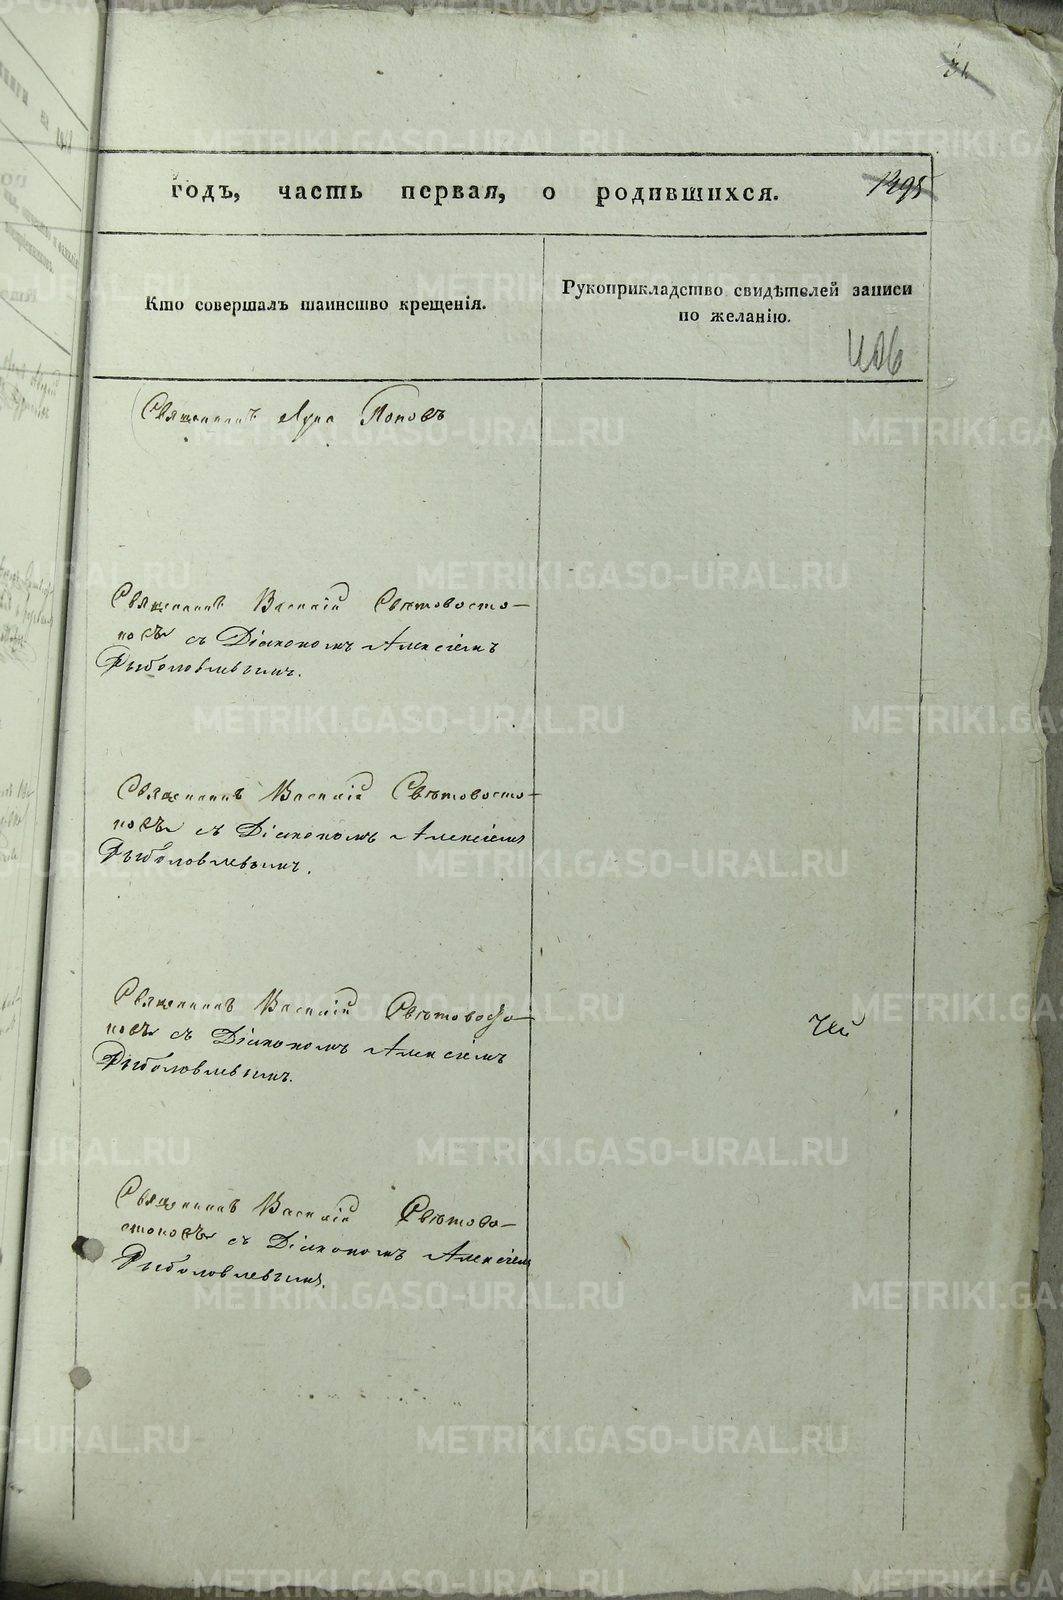 годъ, часть первая, о родившихся. 1495
Кто совершалъ таинство крещенія.
Рукоприкладство свидѣтелей записи
по желанію.
406
Священникъ Лука Поповъ
Священникъ Василій Свѣтовосто-
ковъ съ Діакономъ Алексіемъ
Рыболовлевымъ.
Священникъ Василій Свѣтовосто-
ковъ съ Діакономъ Алексіемъ
Рыболовлевымъ.
Священникъ Василій Свѣтовосто-
ковъ съ Діакономъ Алексіемъ
Рыболовлевымъ.
Священникъ Василій Свѣтово-
стоковъ съ Діакономъ Алексіемъ
Рыболовлевымъ.
METRIKI.GASO-URAL.RU